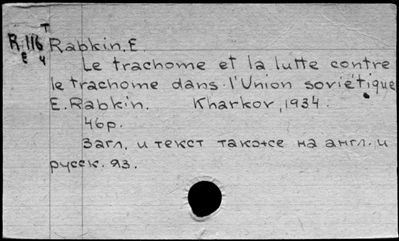 T
R.116 Rabkin.E.
E 4
Le trachome et la lutte contre
le trachome dans l'Union soviétique
E.Rabkin. Kharkov, 1934.
46p.
Загл. и текст также на англ. и
русск. яз.